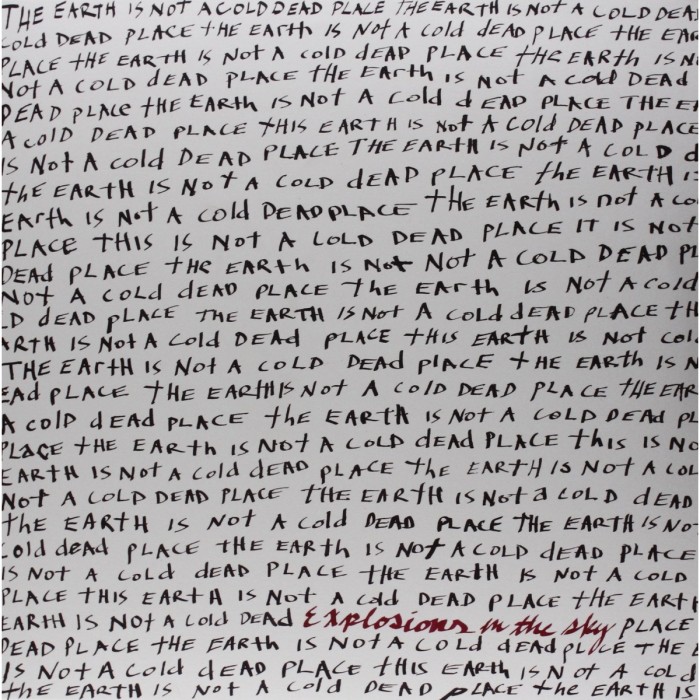 THE EARTH IS NOT A COLD DEAD PLACE THE EARTH IS NOT A COLD DEA
COLD DEAD PLACE THE EARTH IS NOT A COLD DEAD PLACE THE EAR
PLACE THE EARTH IS NOT A COLD dEAD PLACE THE EARTH IS N
NOT A COLD dEAD PLACE tHE EARth IS NOT A COLD DEAD
DEAD PLACE tHE EARth IS Not A Cold dEAD PLACE THE E
A COLD DEAD PLACE tHIS EARTH IS Not A COld DEAD PLACE
IS NOT A cold DEAD PLACE THE EARtH IS NOT A COLD d
thE EARTH IS NOT A COLD dEAD PLACE thE EARTH I
EARth IS NOT A cold DEAD PLACE tHE EARth IS not A CO
PLACE THIS IS NOT A COLD DEAD PLACE IT IS NOT
DEAd PLACE tHe EARtH IS Not NOT A COLD DEAD PL
NOT A COLd dEAD PLACE THE EARTH IS NOT A COld
LD dEAD pLACE THE EARTH IS NOT A COLD dEAD PLACE tH
ARTH IS NOT A COld DEAD PLACE tHIS EARTH IS NOT COL
THE EARtH IS NOT A COLD DEAD plACE tHE EARTH IS N
EAd PLACE tHE EARTH IS NOT A COlD DEAD PLACE tHE EAR
A COLD dEAd PLACE thE EARTH IS NOT A COLD DEAD PL
PLACE tHE EARTH IS NOT A COLD dEAD PLACE this IS NO
EARTH IS NOT A cold dEAD pLACE thE EARTH IS NOT A COL
NOT A COLD DEAD PLACE tHE EARTH IS NOT a COLD dEAD
thE EARTH IS NOT A COld DEAD PLACE THE EARTH IS NO
cold dead PLACE tHE EARth IS NOT A COLD dEAD PLACE
IS NOT A COLd dEAD PLACE tHE EARtH IS NOT A COLD
PLACE THIS EARTH IS NOT A COLD DEAD PLACE tHE EARTH
EARTH IS NOT A COLD DEAD Explosions in the sky PLACE
DEAD PLACE THE EARTH IS NOT A COLD dEAd PLACE THE
IS NOT A COLd dEAD PLACE tHIS EARTH IS NOT A COLD
tHE EARTH IS NOT A COLD DEAD PLACE tHE EARTH I